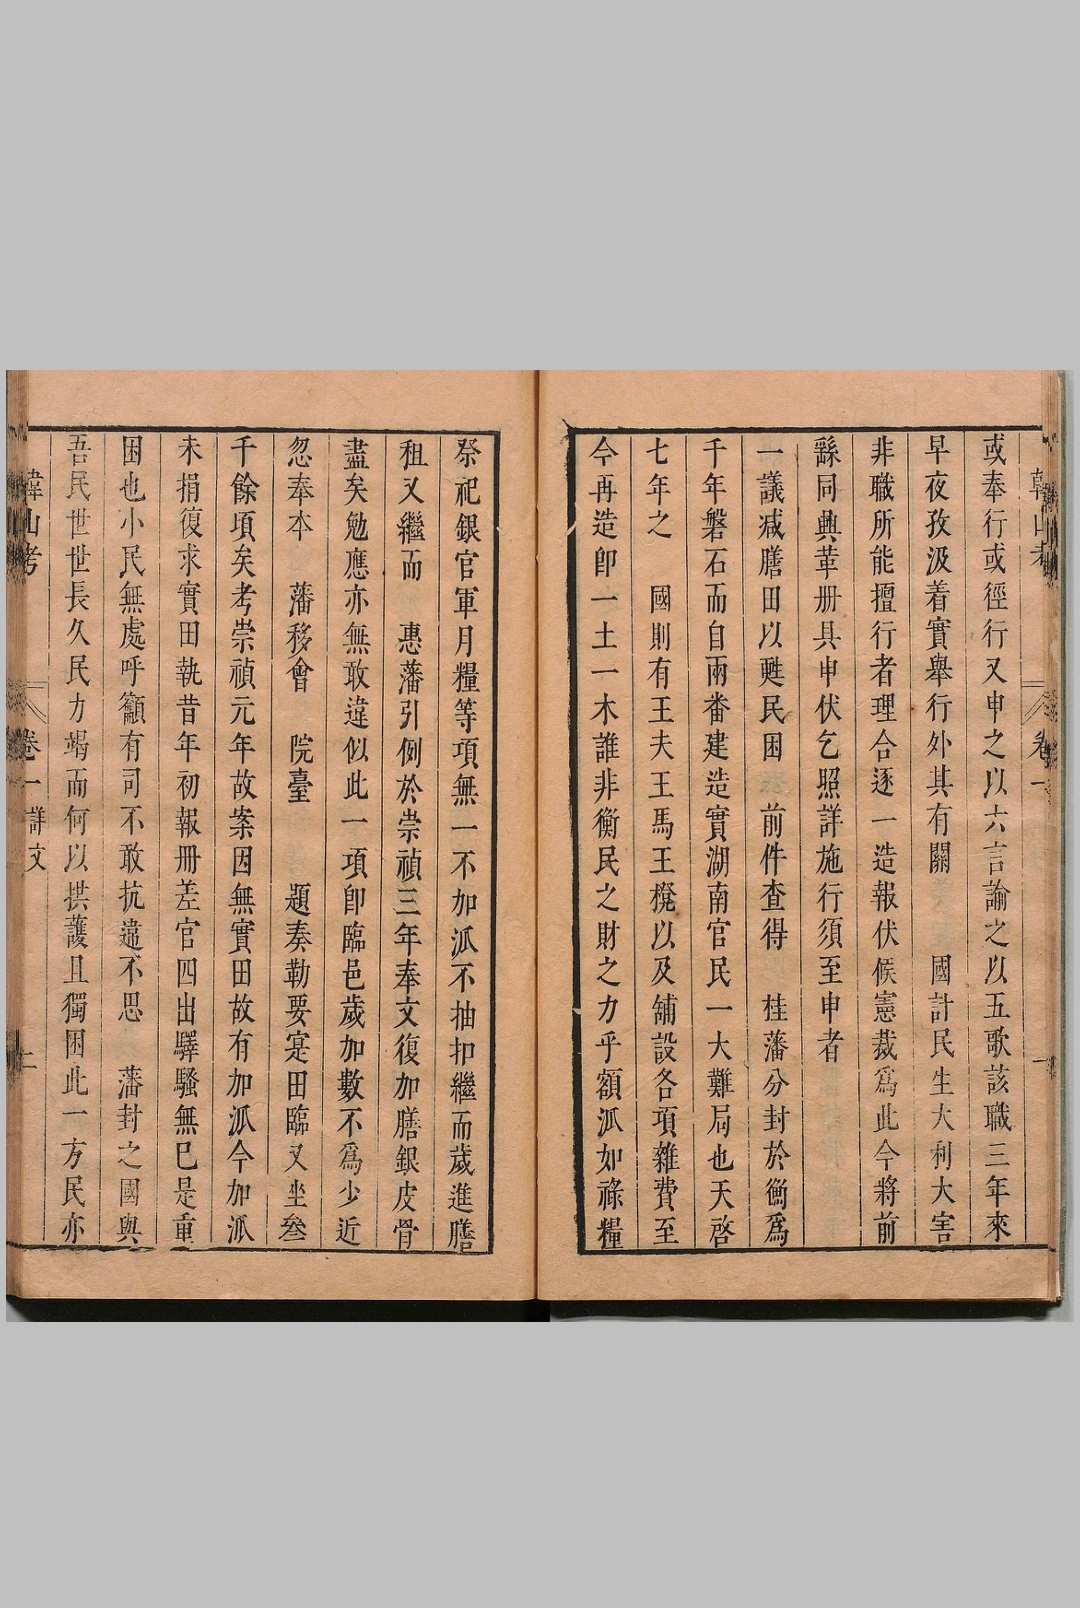 或奉行或徑行又申之以六言諭之以五歌該職三年來
早夜孜汲着實舉行外其有關　國計民生大利大害
非職所能擅行者理合逐一造報伏候憲裁爲此今將前
繇同興革冊具申伏乞照詳施行須至申者
一議减膳田以甦民困　前件查得　桂藩分封於衡爲
千年磐石而自兩畨建造實湖南官民一大難局也天啓
七年之　國則有王夫王馬王櫈以及舖設各項雜費至
今再造卽一土一木誰非衡民之財之力乎額派如祿糧
祭祀銀官軍月糧等項無一不加派不抽扣繼而歲進膳
租又繼而　惠藩引例於崇禎三年奉文復加膳銀皮骨
盡矣勉應亦無敢違似此一項卽臨邑歲加數不爲少近
忽奉本　藩移會　院臺　題奏勒要寔田臨又坐叄
千餘頃矣考崇禎元年故案因無實田故有加派今加派
未捐復求實田執昔年初報冊差官四出驛騷無已是重
困也小民無處呼籲有司不敢抗違不思　藩封之國與
吾民世世長久民力竭而何以拱護且獨困此一方民亦
韓山考　卷一　詳文　二